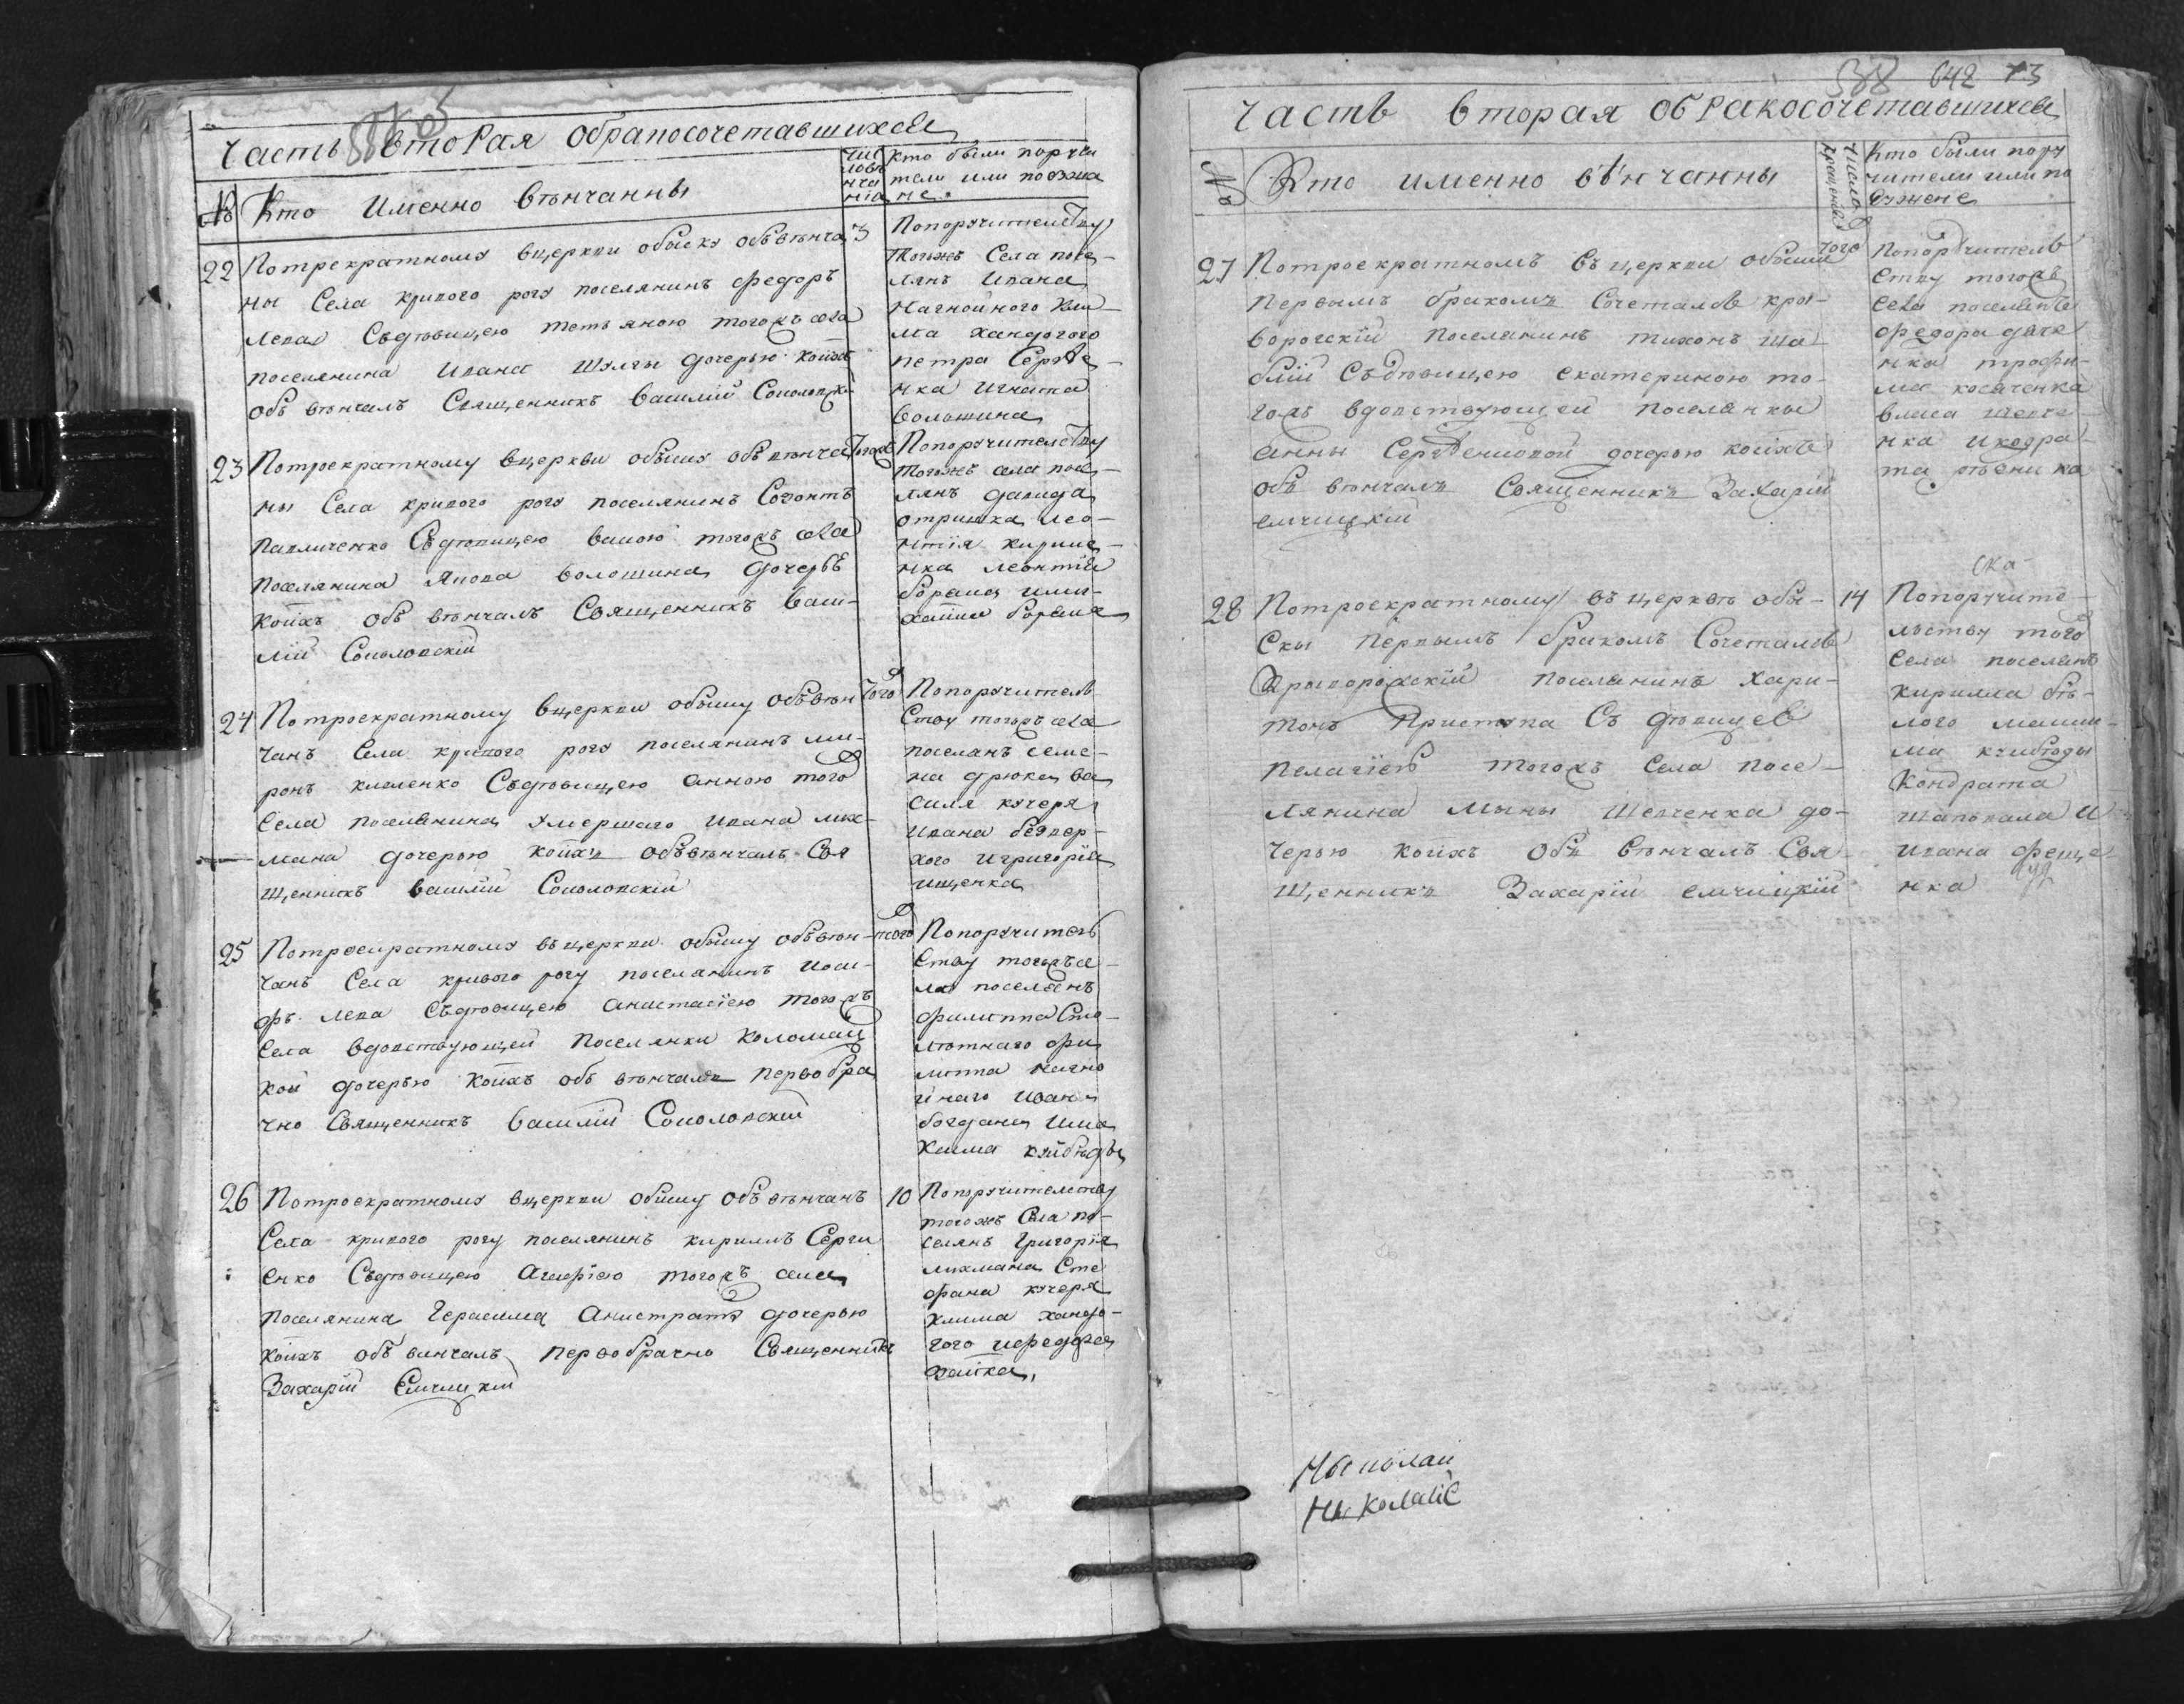 Часть вторая обракосочетавшихся
№
Кто именно вѣнчанны
чис
ловѣ
нча
нія
Кто были поручи
тели или поѣзжа
не.
22
Потрекратному вцеркви обыску обвѣнча
ны Села кривого рогу поселянинъ федоръ
Лепа Сдѣвицею тетьяною тогожъ села
поселянина Ивана Шулги дочерью коихъ
обвѣнчалъ Священникъ василій Соколовскій
3
Попоручителству
тогожъ Села посе-
лянъ Ивана
Нагнойного Кли-
ма хандогого
петра Сердю-
нка Игната
волошина
23
Потроекратному вцеркви обыску обвѣнча
ны Села кривого рогу поселянинъ Созонтъ
павличенко Сдѣвицею тогожъ села
поселянина Якова волошина дочерью
коихъ обвѣнчалъ Священникъ васи-
лій Соколовскій
Тогожъ
Попоручителству
тогожъ села посе-
лянъ давида
отришка Лео-
нтія кириче-
нка леонтія
24
Потроекратному вцеркви обыску обвѣн
чанъ Села кривого рогу поселянинъ ми-
ронъ Сдѣвицею анною того
Села поселянина умершаго Ивана лих-
мана дочерью коихъ обвѣнчалъ Свя
щенникъ василій Соколовскій
того
Попоручитель
Ству тогожъ села
поселянъ семе-
на дрюка ва
силя кучеря
Ивана безпер-
хого игригорія
ищенка
25
Потроекратному въцеркви обыску обвѣн-
чанъ Села кривого рогу поселянинъ иоси-
фъ лепа Сдѣвицею анистасіею тогожъ
Села вдовствующей поселянки коломац
кой дочерью коихъ обвѣнчалъ первобра
чно Священникъ василій Соколовскій
того
Попоручитель
Ству тогожъ се-
ла поселянъ
филиппа Сто-
лѣтнаго фи
липпа нагно
йнаго Ивана
богдана Има
26
Потроекратному вцеркви обыску обвѣнчанъ
Села кривого рогу поселянинъ кирилъ Серги
енко Сдѣвицею агафіею тогожъ села
поселянина Герасима Анистрата дочерью
коихъ обвинчалъ первобрачно Священникъ
Захарій Емчицкій
10
Попоручителству
тогожъ Села по-
селянъ Григорія
лихмана Сте
фана кучеря
клима хандо-
гого ифедора
заика,
588 642 73
Часть вторая обракосочетавшихся
№
Кто именно вѣнчанны
число
крещенія
Кто были пору
чители или по
ѣзжене
27
Потроекратномъ въ церкви обыски
первымъ бракомъ Сочетался кри-
ворогскій поселянинъ тихонъ ша
блій Съдѣвицею екатериною то-
гожъ вдовствующей поселянки
Анны Сердюковой дочерью коихъ
обвѣнчалъ Священникъ Захарій
емчицкій
того
Попоручитель
Ству тогожъ
села поселянъ
федора
нка трофи-
ма косаченка
власа шевче-
нка икодра-
та
28
Потроекратному въ церквѣ обы-
ски первымъ бракомъ Сочетался
Криворожскій поселянинъ Хари-
тонъ Приступа Съ дѣвицею
пелагіею тогожъ Села посе-
лянина Мины Шевченка до-
черью коихъ обвѣнчалъ Свя-
щенникъ Захарій емчицкій
14
Попоручите-
льству того
Села поселянъ
Кирилла бѣ-
лого макси-
ма кчибгоды
Кондрата
шаповала и
ивана феще-
нка
Николай